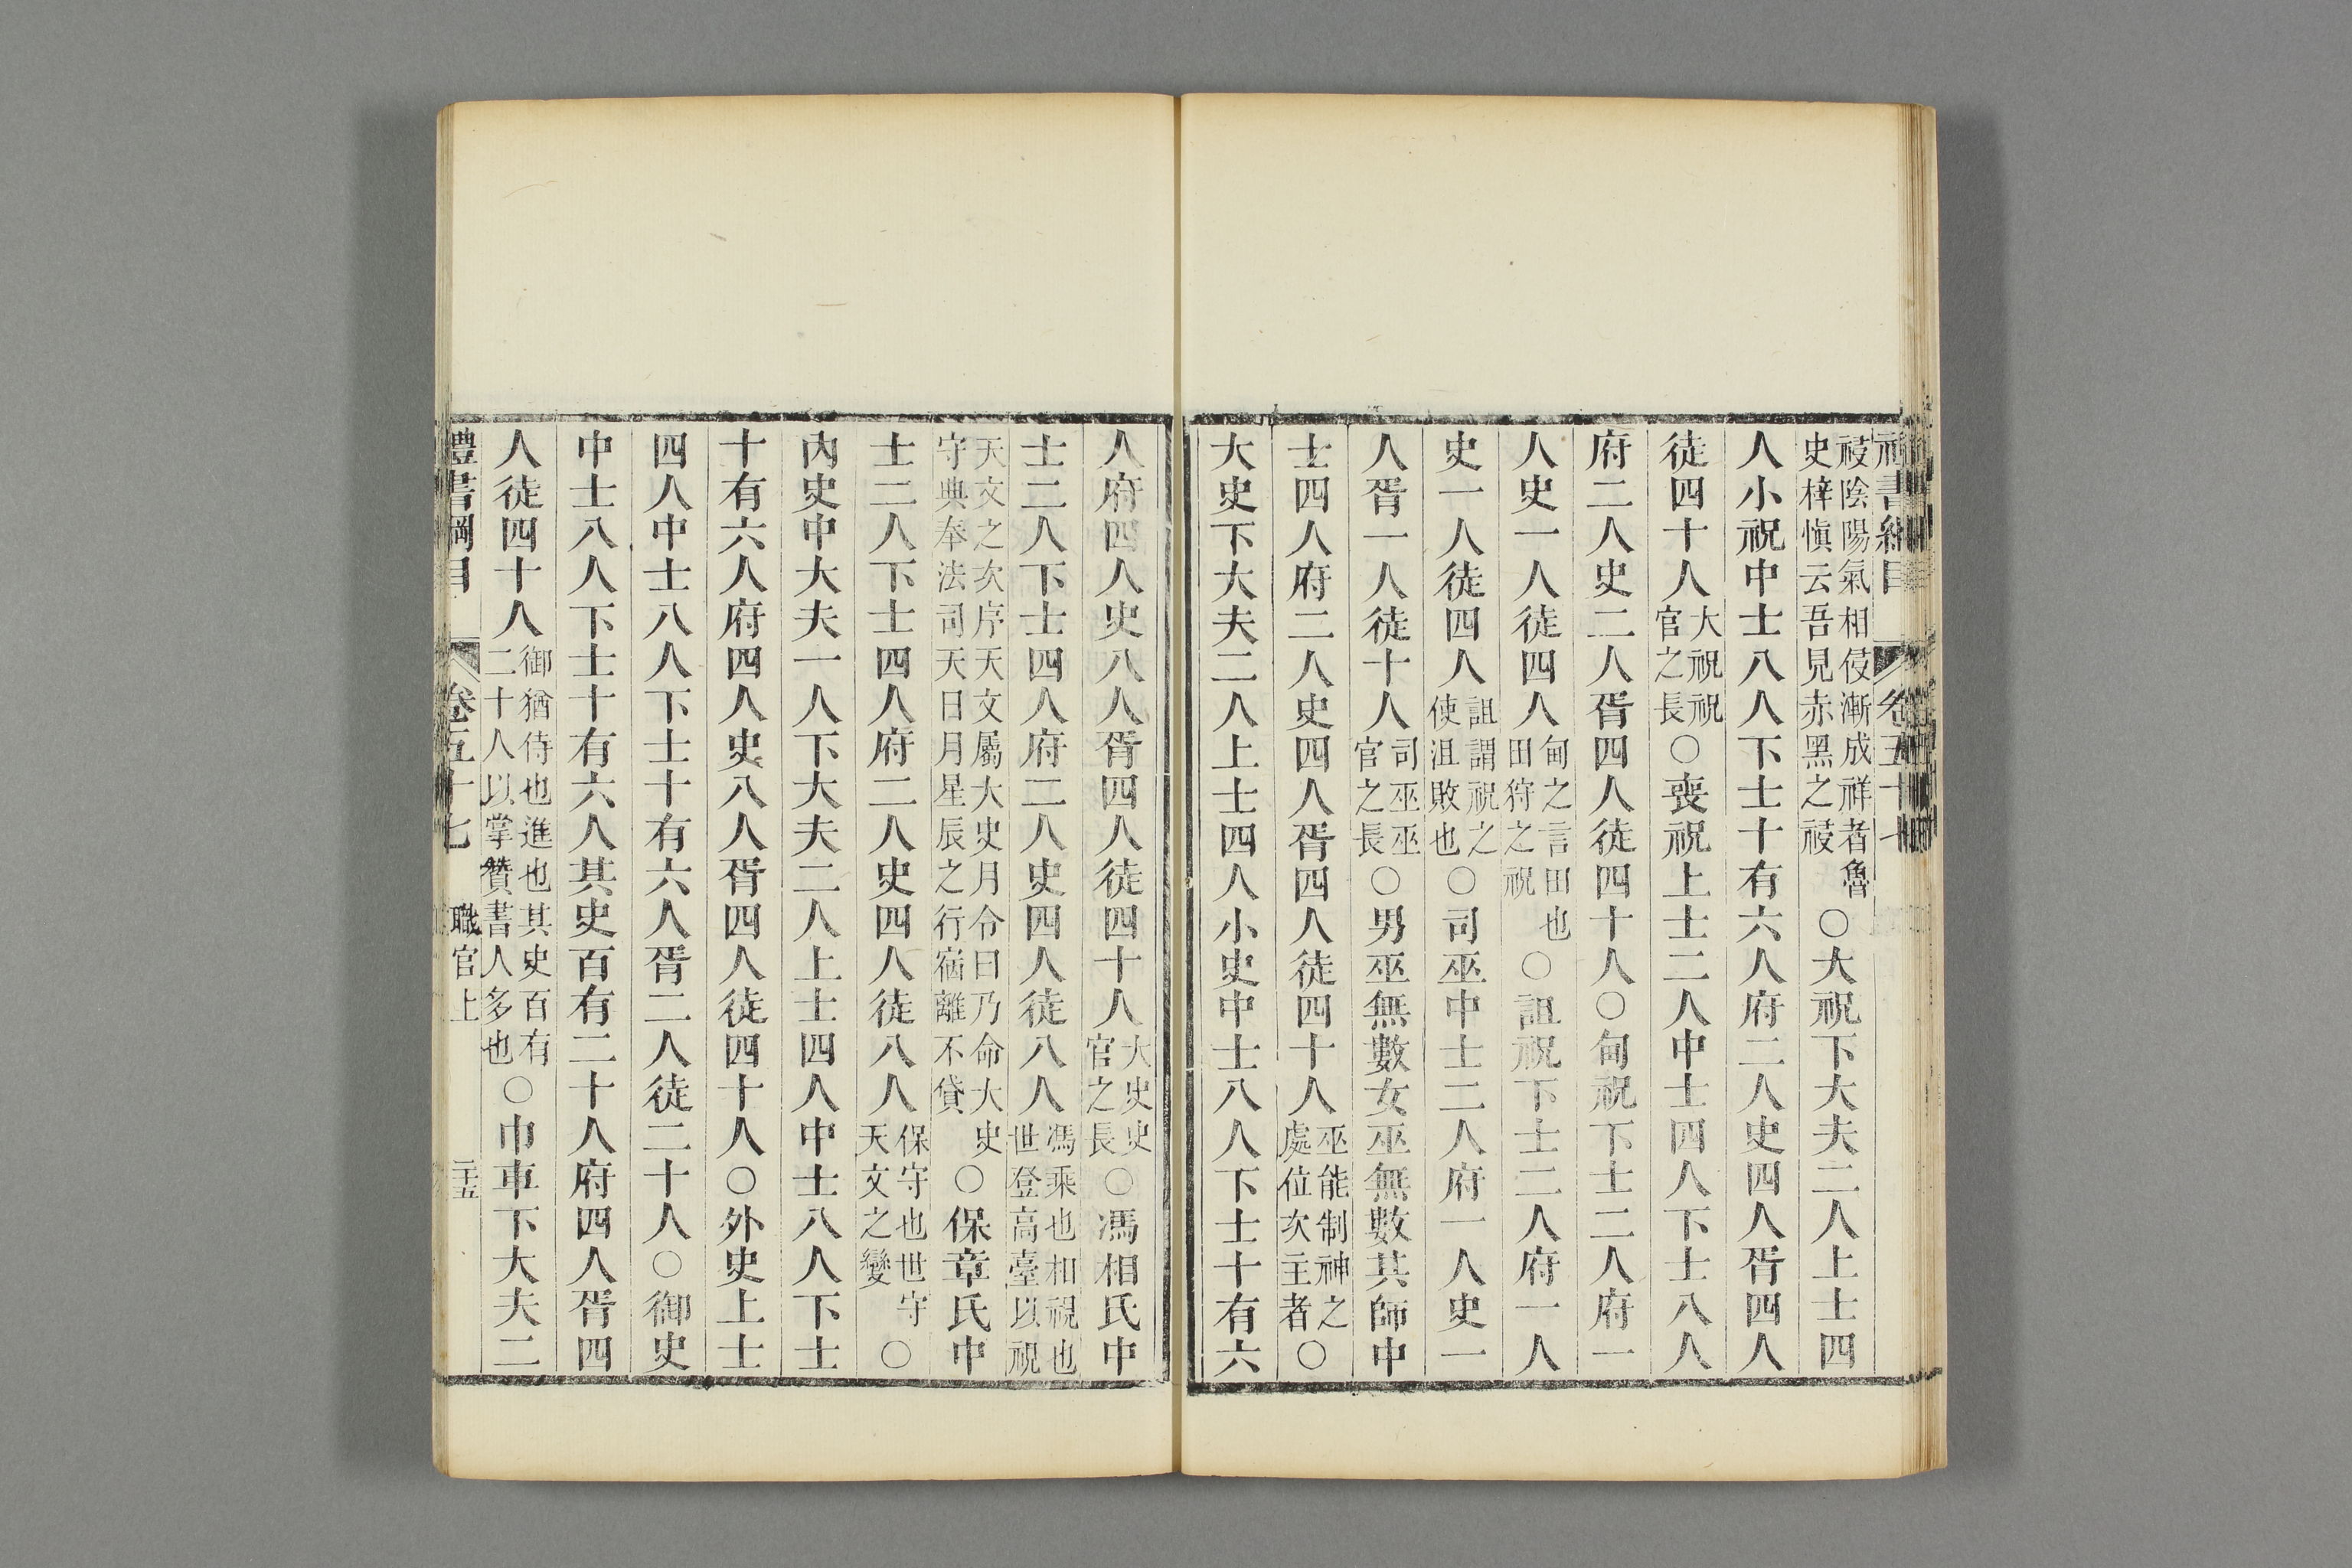 禮書綱目 卷五十七
祲陰陽氣相侵漸成祥者魯史梓愼云吾見赤黑之祲○大祝下大夫二人上士四
人小祝中士八人下士十有六人府二人史四人胥四人
徒四十人大祝祝官之長○喪祝上士二人中士四人下士八人
府二人史二人胥四人徒四十人○甸祝下士二人府一
人史一人徒四人甸之言田也田狩之祝○詛祝下士二人府一人
史一人徒四人詛謂祝之使沮敗也○司巫中士二人府一人史一
人胥一人徒十人司巫巫官之長○男巫無數女巫無數其師中
士四人府二人史四人胥四人徒四十人巫能制神之處位次主者○
大史下大夫二人上士四人小史中士八人下士十有六
人府四人史八人胥四人徒四十人大史史官之長○馮相氏中
士二人下士四人府二人史四人徒八人馮乘也相視也世登高臺以視
天文之次序天文屬大史月令曰乃命大史守典奉法司天日月星辰之行宿離不貸○保章氏中
士二人下士四人府二人史四人徒八人保守也世守天文之變○
內史中大夫一人下大夫二人上士四人中士八人下士
十有六人府四人史八人胥四人徒四十人○外史上士
四人中士八人下士十有六人胥二人徒二十人○御史
中士八人下士十有六人其史百有二十人府四人胥四
人徒四十人御猶侍也進也其史百有二十人以掌贊書人多也○巾車下大夫二
禮書綱目 卷五十七 職官上 二十五